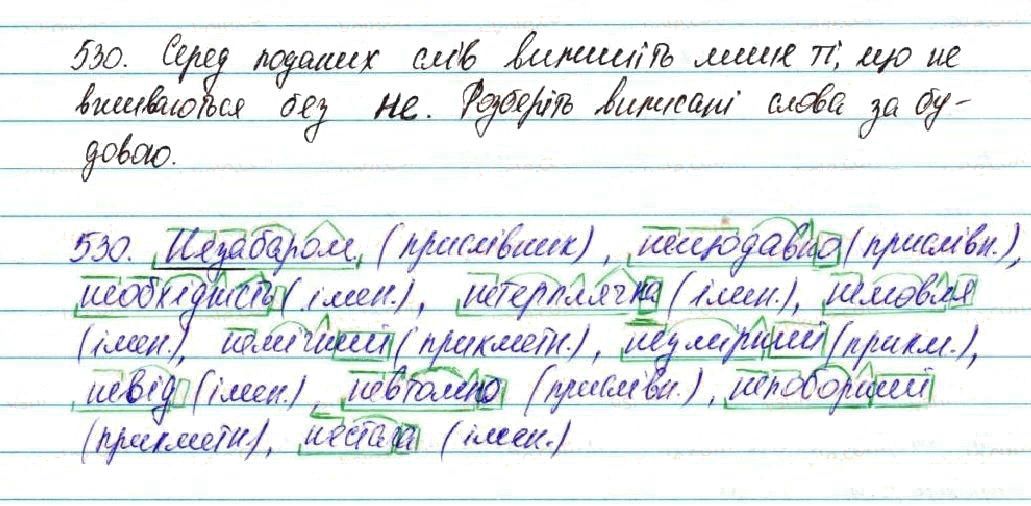 530. Серед поданих слів випишіть лише ті, що не
вживаються без не. Розберіть виписані слова за бу-
довою.
530. Незабаром (прислівник), нещодавно (прислівн.),
необхідність (імен.), нетерплячка (імен.), немовля
(імен.), немічний (прикметн.), неумірний (прикм.),
невід (імен.), невтомно (прислівн.), непоборний
(прикметн.), нестала (імен.)